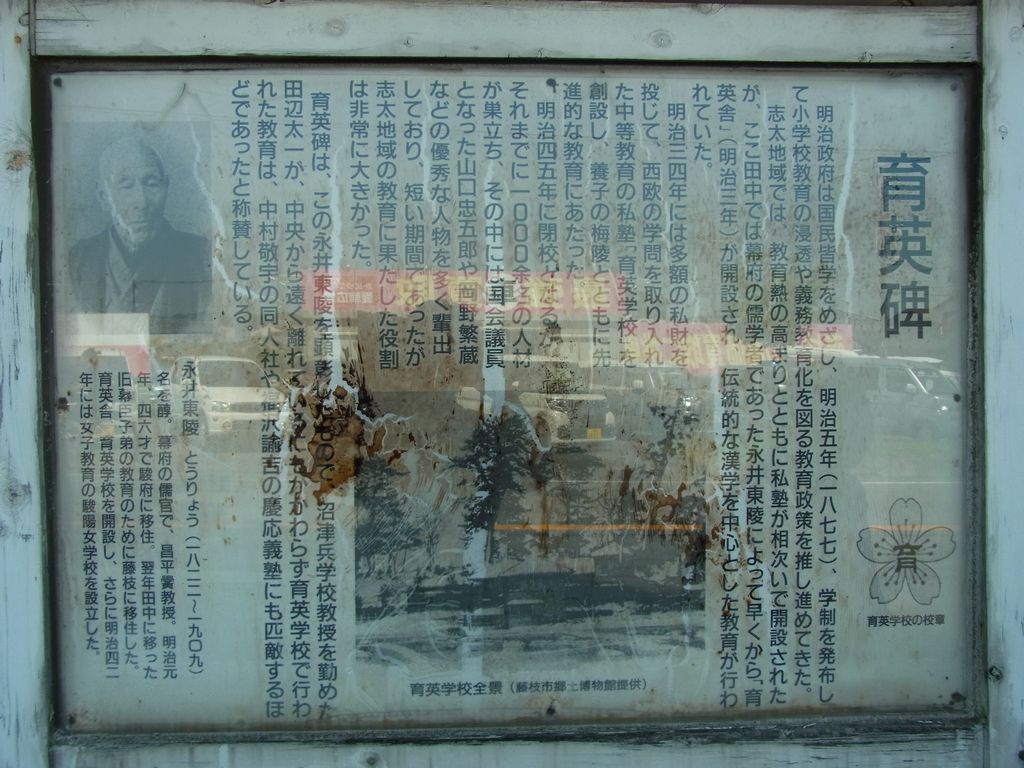 育英碑
明治政府は国民皆学をめざし、明治五年(一八七七)、学制を発布し
て小学校教育の浸透や義務教育化を図る教育政策を推し進めてきた。
志太地域では、教育熱の高まりとともに私塾が相次いで開設された
が、ここ田中では幕府の儒学者であった永井東陵によって早くから「育
英舎」(明治三年)が開設され、伝統的な漢学を中心とした教育が行わ
れていた。
明治二四年には多額の私財を
投じて、西欧の学問を取り入れ
た中等教育の私塾「育英学校」を
創設し、養子の梅陵とともに先
進的な教育にあたった。
明治四五年に閉校となるが、
それまでに一〇〇〇余名の人材
が巣立ち、その中には国会議員
となった山口忠五郎や岡野繁蔵
などの優秀な人物を多く輩出
しており、短い期間であったが
志太地域の教育に果たした役割
は非常に大きかった。
育英碑は、この永井東陵を顕彰 もので、沼津兵学校教授を勤めた
田辺太一が、中央から遠く離れているにもかかわらず育英学校で行わ
れた教育は、中村敬宇の同人社や福沢諭吉の慶応義塾にも匹敵するほ
どであったと称賛している。
永井東陵 とうりょう(一八二二〜一九〇九)
名を醇。幕府の儒官で、昌平黌教授。明治元
年、四六才で駿府に移住。翌年田中に移った
旧幕臣子弟の教育のために藤枝に移住した。
育英舎、育英学校を開設し、さらに明治四二
年には女子教育の駿陽女学校を設立した。
育
育英学校の校章
育英学校全景(藤枝市郷土博物館提供)